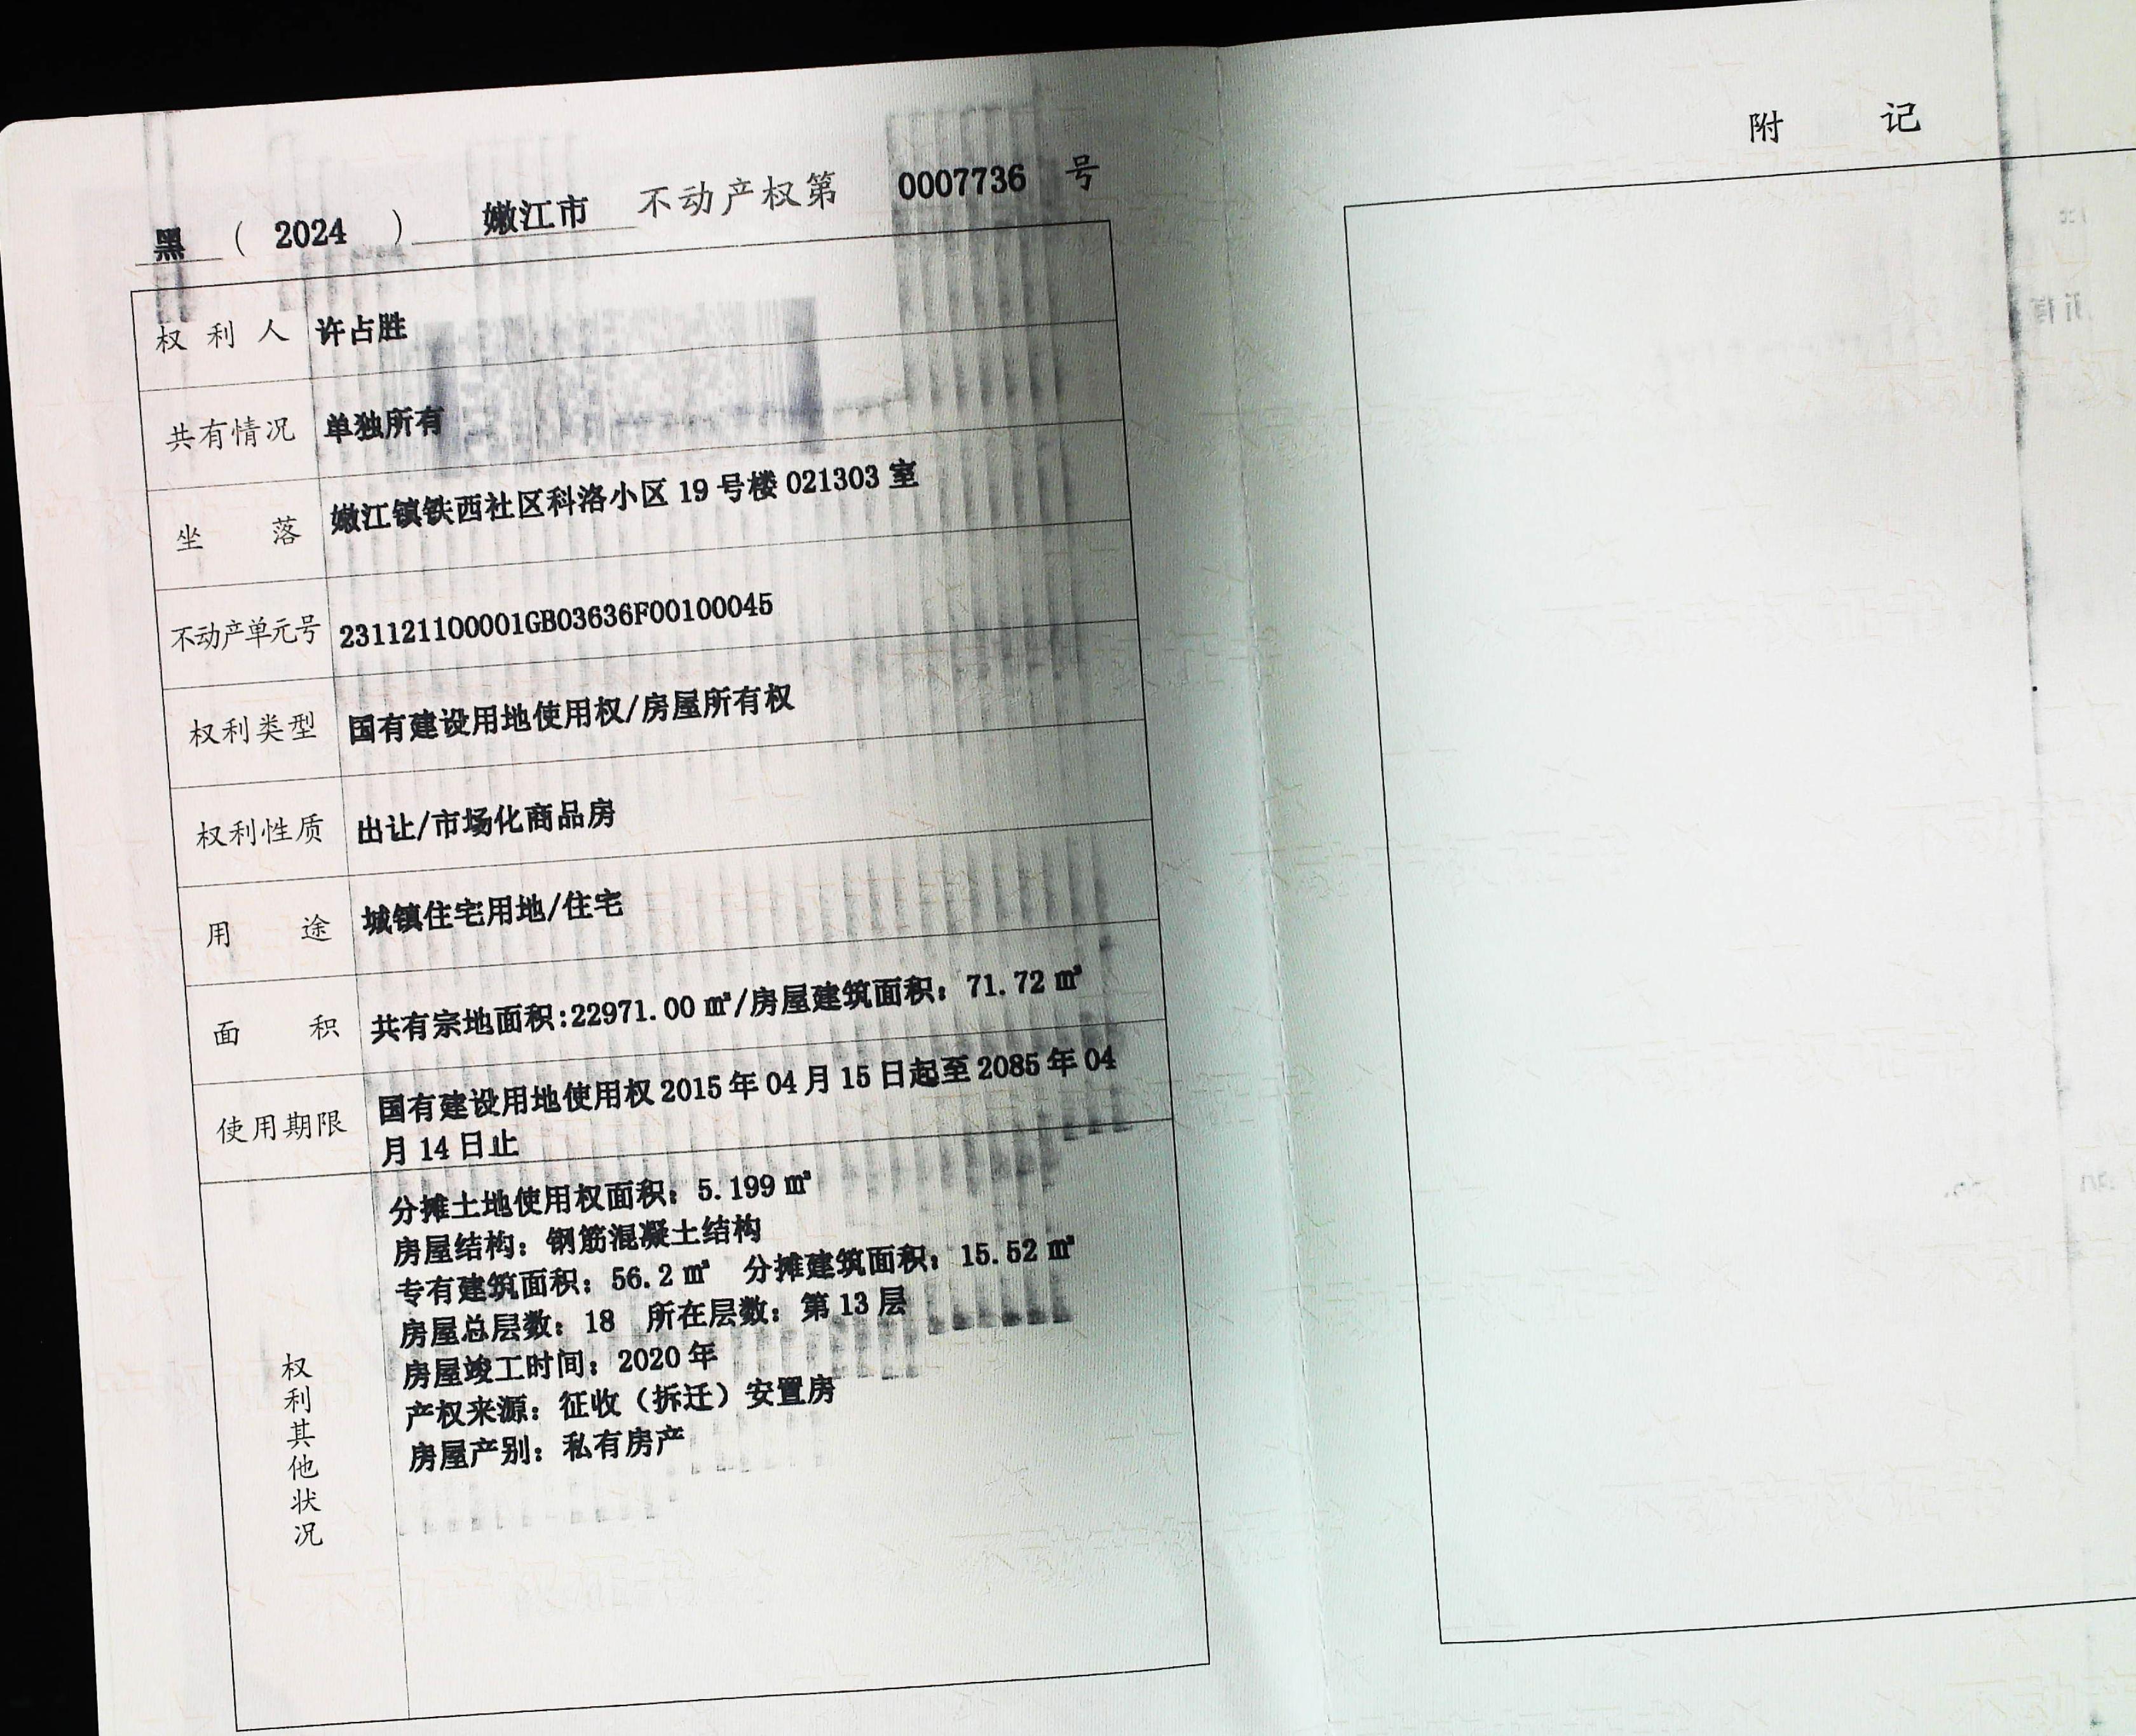 黑（2024）嫩江市不动产权第 0007736 号
权利人 许占胜
共有情况 单独所有
坐落 嫩江镇铁西社区科洛小区 19 号楼 021303 室
不动产单元号 231121100001GB03636F00100045
权利类型 国有建设用地使用权/房屋所有权
权利性质 出让/市场化商品房
用途 城镇住宅用地/住宅
面积 共有宗地面积:22971.00 ㎡/房屋建筑面积：71.72 ㎡
使用期限 国有建设用地使用权 2015 年 04 月 15 日起至 2085 年 04
月 14 日止
权利其他状况
分摊土地使用权面积：5.199 ㎡
房屋结构：钢筋混凝土结构
专有建筑面积：56.2 ㎡ 分摊建筑面积：15.52 ㎡
房屋总层数：18 所在层数：第 13 层
房屋竣工时间：2020 年
产权来源：征收（拆迁）安置房
房屋产别：私有房产
附记